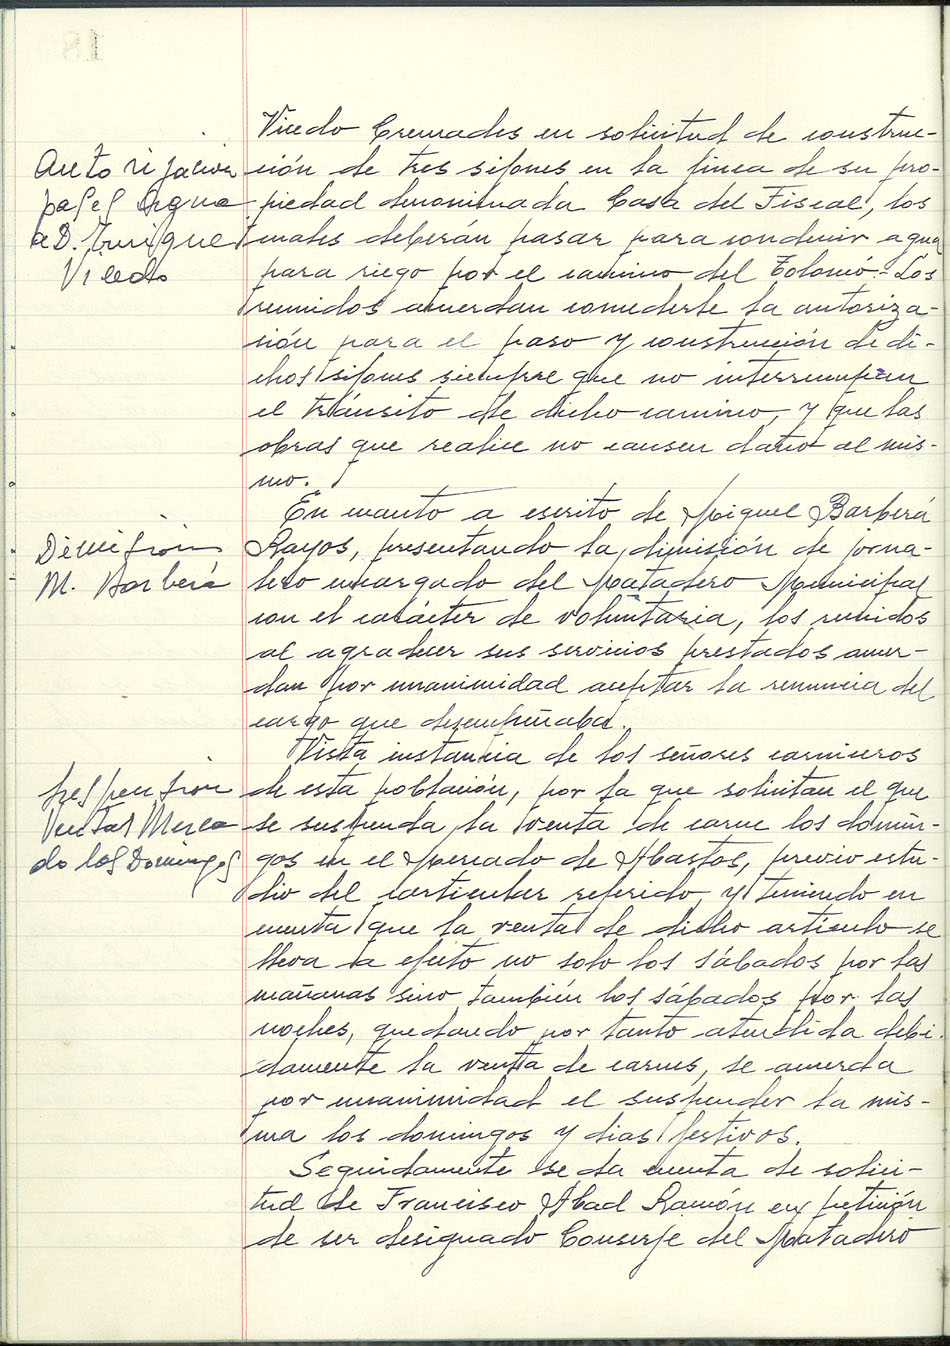 Vicedo Cremades en solicitud de construc-
Autorización
ción de tres sifones en la finca de su pro-
pasej Agua
piedad denominada Casa del Fiscal, los
a D. Enrique
cuales deberán pasar para conducir agua
Vicedo
para riego por el camino del Tolomó.- Los
reunidos acuerdan concederle la autoriza-
ción para el paso y construcción de di-
chos sifones siempre que no interrumpan
el tránsito de dicho camino, y que las
obras que realice no causen daño al mis-
mo.
En cuanto a escrito de Miguel Barberá
Dimisión
Rayos, presentando la dimisión de jorna-
M. Barberá
lero encargado del Matadero Municipal
con el carácter de voluntaria, los reunidos
al agradecer sus servicios prestados acuer-
dan por unanimidad aceptar la renuncia del
cargo que desempeñaba.
Vista instancia de los señores carniceros
Suspensión
de esta población, por la que solicitan el que
Ventas Merca
se suspenda la venta de carne los domin-
do los Domingos
gos en el Mercado de Abastos, previo estu-
dio del particular referido, y teniendo en
cuenta que la venta de dicho articulo se
lleva a efecto no solo los sábados por las
mañanas sino también los sábados por las
noches, quedando por tanto atendida debi-
damente la venta de carnes, se acuerda
por unanimidad el suspender la mis-
ma los domingos y dias festivos.
Seguidamente se da cuenta de solici-
tud de Francisco Abad Ramón en petición
de ser designado Conserje del Matadero